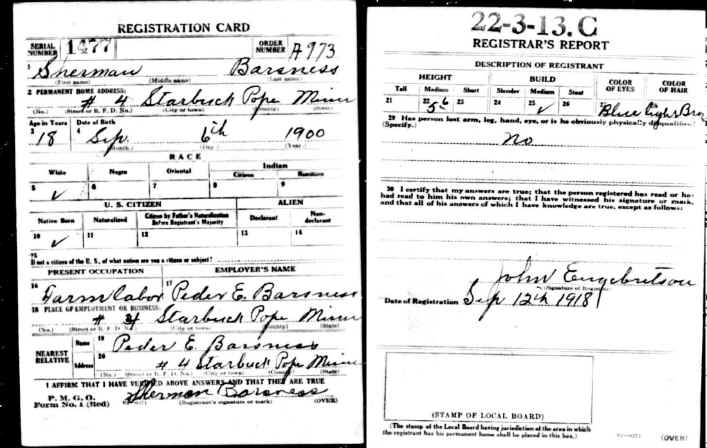 REGISTRATION CARD
SERIAL NUMBER 1477 ORDER NUMBER A973
1 Sherman Barsness
(First name) (Middle name) (Last name)
2 PERMANENT HOME ADDRESS:
# 4 Starbuck Pope Minn
(No.) (Street or R. F. D. No.) (City or town) (County) (State)
Age in Years Date of Birth
3 18 4 Sep. 6th 1900
(Month.) (Day.) (Year.)
RACE
White Negro Oriental Indian
Citizen Noncitizen
5 ✓ 6 7 8 9
U. S. CITIZEN ALIEN
Native Born Naturalized Citizen by Father's Naturalization Before Registrant's Majority Declarant Non-declarant
10 ✓ 11 12 13 14
15
If not a citizen of the U. S., of what nation are you a citizen or subject?
PRESENT OCCUPATION EMPLOYER'S NAME
16 Farm Labor 17 Peder E. Barsness
18 PLACE OF EMPLOYMENT OR BUSINESS:
# 4 Starbuck Pope Minn
(No.) (Street or R. F. D. No.) (City or town) (County) (State)
NEAREST RELATIVE Name 19 Peder E. Barsness
Address 20 # 4 Starbuck Pope Minn
(No.) (Street or R. F. D. No.) (City or town) (County) (State)
I AFFIRM THAT I HAVE VERIFIED ABOVE ANSWERS AND THAT THEY ARE TRUE
P. M. G. O.
Form No. 1 (Red) Sherman Barsness
(Registrant's signature or mark) (OVER)
22-3-13. C
REGISTRAR'S REPORT
DESCRIPTION OF REGISTRANT
HEIGHT BUILD COLOR OF EYES COLOR OF HAIR
Tall Medium Short Slender Medium Stout
21 22 5 6 23 24 25 ✓ 26 Blue Light Bro
29 Has person lost arm, leg, hand, eye, or is he obviously physically disqualified?
(Specify.)
no
30 I certify that my answers are true; that the person registered has read or has
had read to him his own answers; that I have witnessed his signature or mark,
and that all of his answers of which I have knowledge are true, except as follows:
John Engebretson
(Signature of Registrar)
Date of Registration Sep 12th 1918
(STAMP OF LOCAL BOARD)
(The stamp of the Local Board having jurisdiction of the area in which
the registrant has his permanent home shall be placed in this box.)